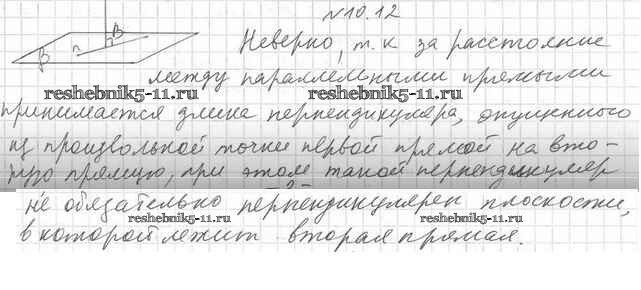 N10.12
B
n
β
Неверно, т.к за расстояние
между параллельными прямыми
reshebnik5-11.ru reshebnik5-11.ru
принимается длина перпендикуляра, опущенного
из произвольной точки первой прямой на вто-
рую прямую, при этом такой перпендикуляр
не обязательно перпендикулярен плоскости,
reshebnik5-11.ru reshebnik5-11.ru
в которой лежит вторая прямая.